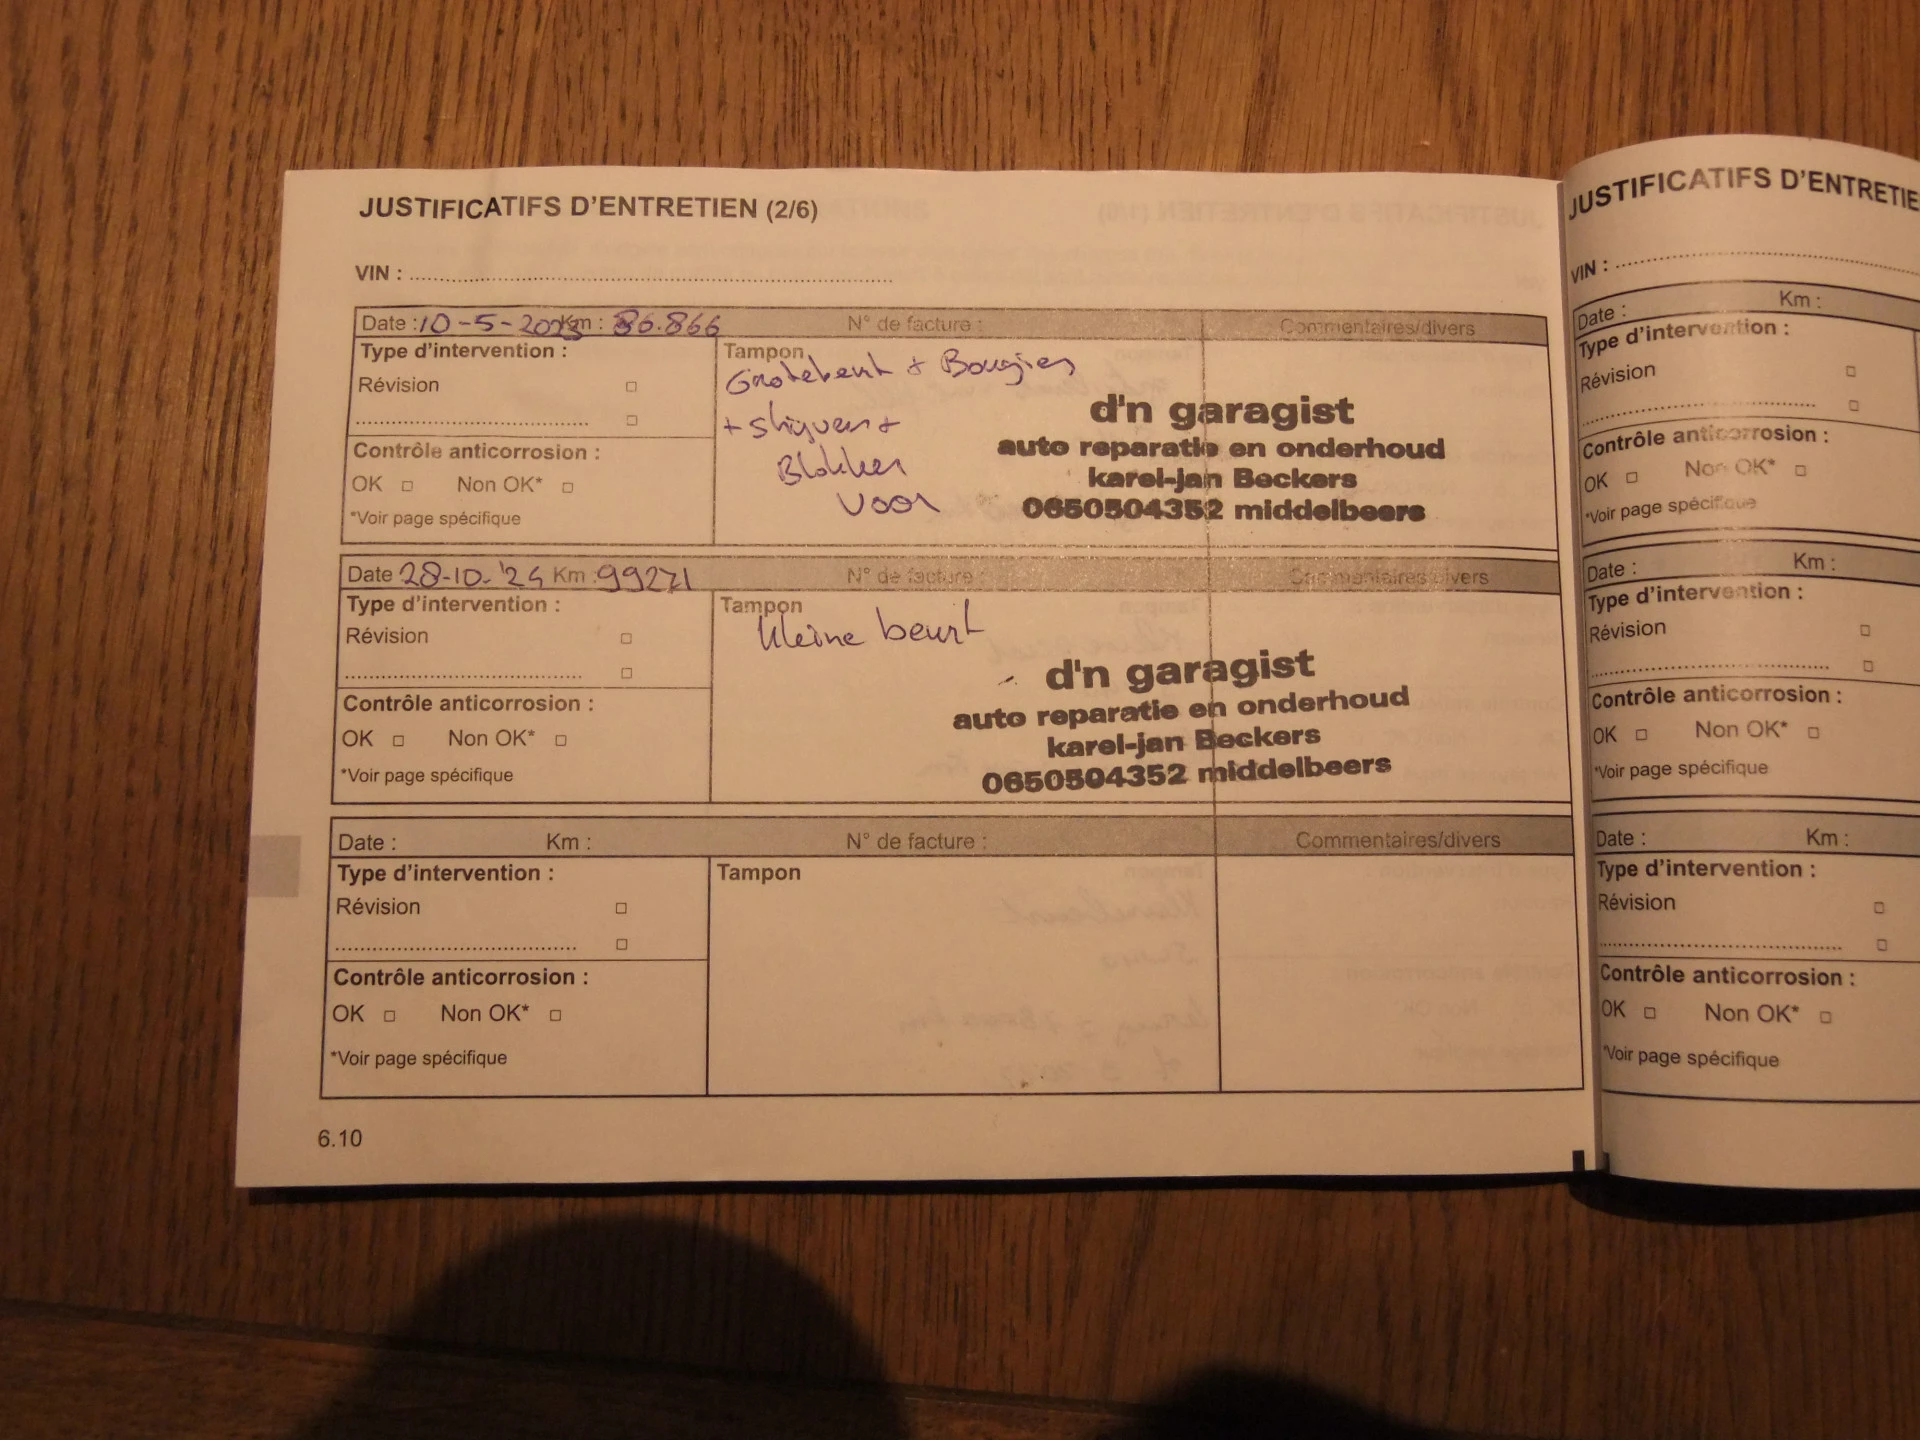 JUSTIFICATIFS D'ENTRETIEN (2/6)
VIN :
Date : 10-5-2023 Km : 86.866 N° de facture : Commentaires/divers
Type d'intervention :
Révision
Contrôle anticorrosion :
OK Non OK*
*Voir page spécifique
Tampon
Grotebeurt + Bougies
+ shijven +
Blokken
Voor
d'n garagist
auto reparatie en onderhoud
karel-jan Beckers
0650504352 middelbeers
Date 28-10-'24 Km : 99271 N° de facture : Commentaires/divers
Type d'intervention :
Révision
Contrôle anticorrosion :
OK Non OK*
*Voir page spécifique
Tampon
kleine beurt
d'n garagist
auto reparatie en onderhoud
karel-jan Beckers
0650504352 middelbeers
Date : Km : N° de facture : Commentaires/divers
Type d'intervention :
Révision
Contrôle anticorrosion :
OK Non OK*
*Voir page spécifique
Tampon
6.10
JUSTIFICATIFS D'ENTRETIE
VIN :
Date : Km :
Type d'intervention :
Révision
Contrôle anticorrosion :
OK Non OK*
*Voir page spécifique
Date : Km :
Type d'intervention :
Révision
Contrôle anticorrosion :
OK Non OK*
*Voir page spécifique
Date : Km :
Type d'intervention :
Révision
Contrôle anticorrosion :
OK Non OK*
*Voir page spécifique